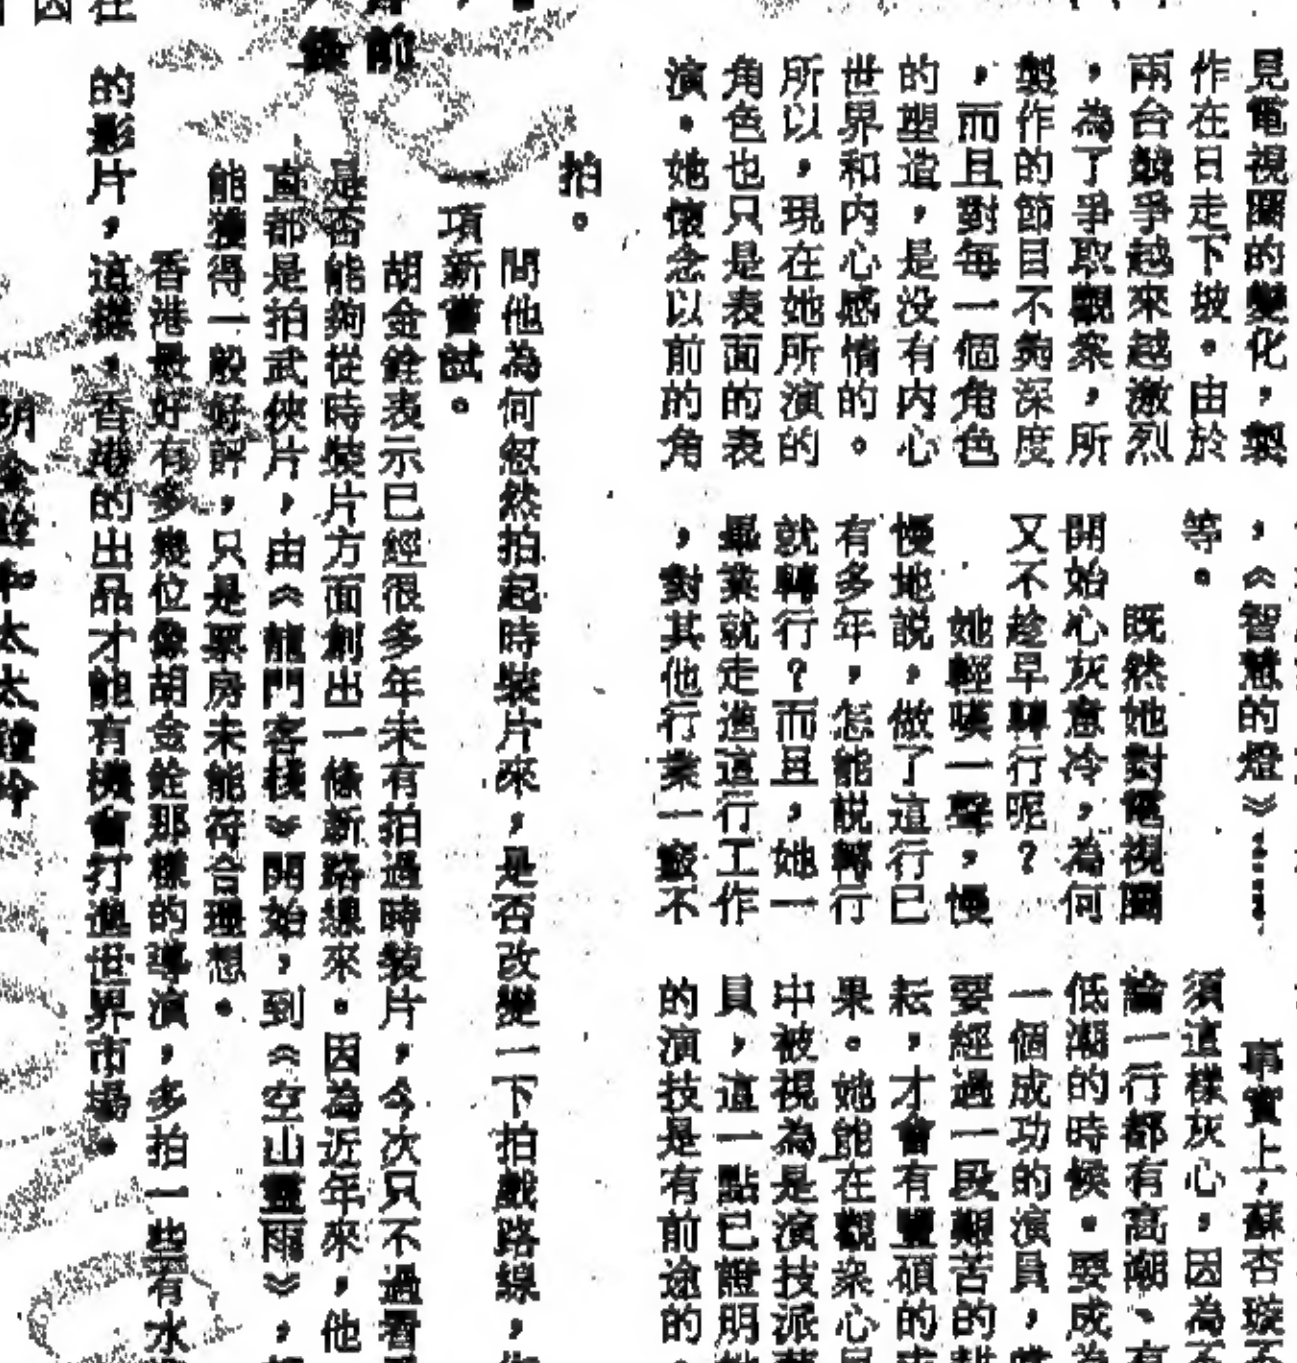 見電視圈的變化，製
作在日走下坡。由於
兩台競爭越來越激烈
，為了爭取觀衆，所
製作的節目不夠深度
，而且對每一個角色
的塑造，是没有内心
世界和内心感情的。
所以，現在她所演的
角色也只是表面的表
演。她懷念以前的角
，《智慧的燈》……
等。
既然她對電視圈
開始心灰意冷，為何
又不趁早轉行呢？
她輕嘆一聲，慢
慢地說，做了這行已
有多年，怎能說轉行
就轉行？而且，她一
畢業就走進這行工作
，對其他行業一竅不
事實上，蘇杏璇不
須這樣灰心，因為不
論一行都有高潮、有
低潮的時候。要成為
一個成功的演員，
要經過一段艱苦的耕
耘，才會有豐碩的成
果。她能在觀衆心目
中被視為是演技派
員，這一點已證明她
的演技是有前途的。
拍。
問他為何忽然拍起時裝片來，是否改變一下拍戲路線，
胡金銓表示已經很多年未有拍過時裝片，今次只不過看
一項新嘗試。
是否能夠從時裝片方面創出一條新路線來。因為近年來，他
直都是拍武俠片，由《龍門客棧》開始，到《空山靈雨》，都
能獲得一般好評，只是票房未能符合理想。
香港最好有多幾位像胡金銓那樣的導演，多拍一些有水
的影片，這樣，香港的出品才能有機會打進世界市場。
胡金銓和太太鍾玲